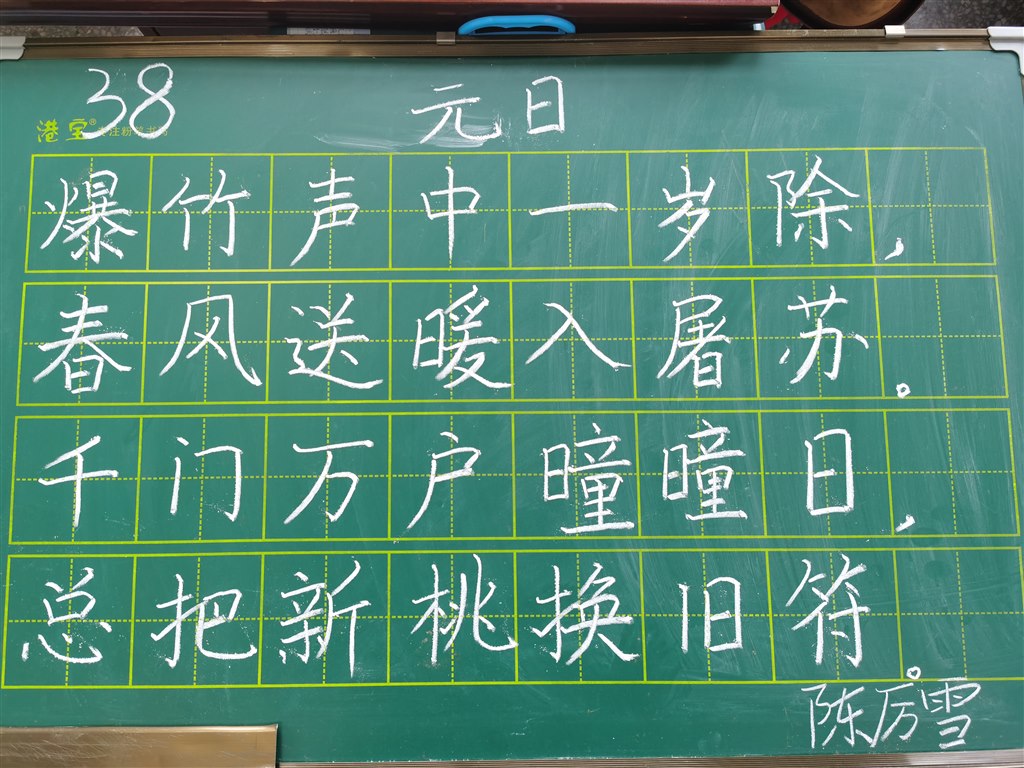 38 元日
港宝®
爆竹声中一岁除，
春风送暖入屠苏。
千门万户曈曈日，
总把新桃换旧符。
陈厉雪